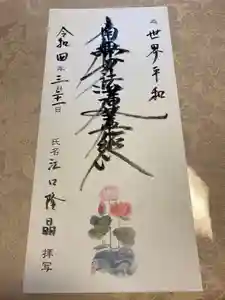 為 世界平和
南無妙法蓮華経
令和四年三月
氏名 江口隆 拝写